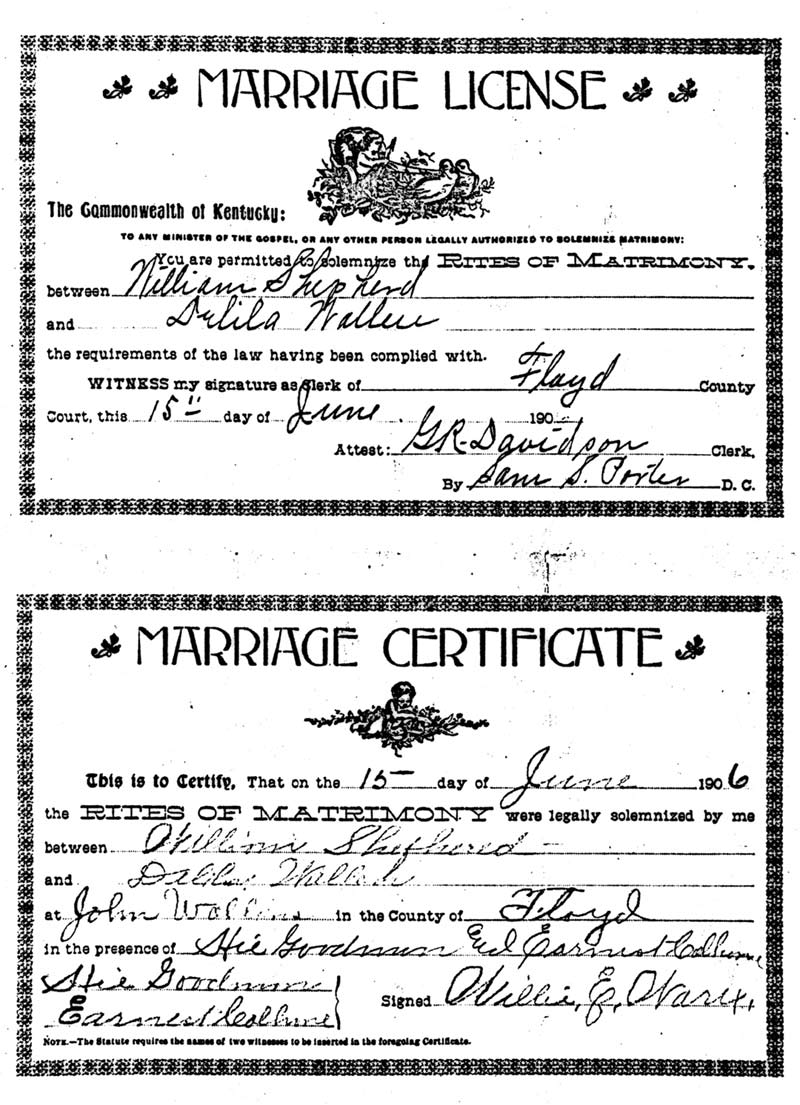 MARRIAGE LICENSE
The Commonwealth of Kentucky:
TO ANY MINISTER OF THE GOSPEL, OR ANY OTHER PERSON LEGALLY AUTHORIZED TO SOLEMNIZE MATRIMONY:
You are permitted to solemnize the RITES OF MATRIMONY,
between William Shepherd
and Delila Wallen
the requirements of the law having been complied with.
WITNESS my signature as Clerk of Floyd County
Court, this 15" day of June 190
Attest: G R Davidson Clerk,
By Sam S. Porter D. C.
MARRIAGE CERTIFICATE
This is to Certify, That on the 15 day of June 1906
the RITES OF MATRIMONY were legally solemnized by me
between William Shepherd
and
at John in the County of Floyd
in the presence of Goodman Earnest
Goodman
Earnest Signed Willie, E,
NOTE.—The Statute requires the names of two witnesses to be inserted in the foregoing Certificate.